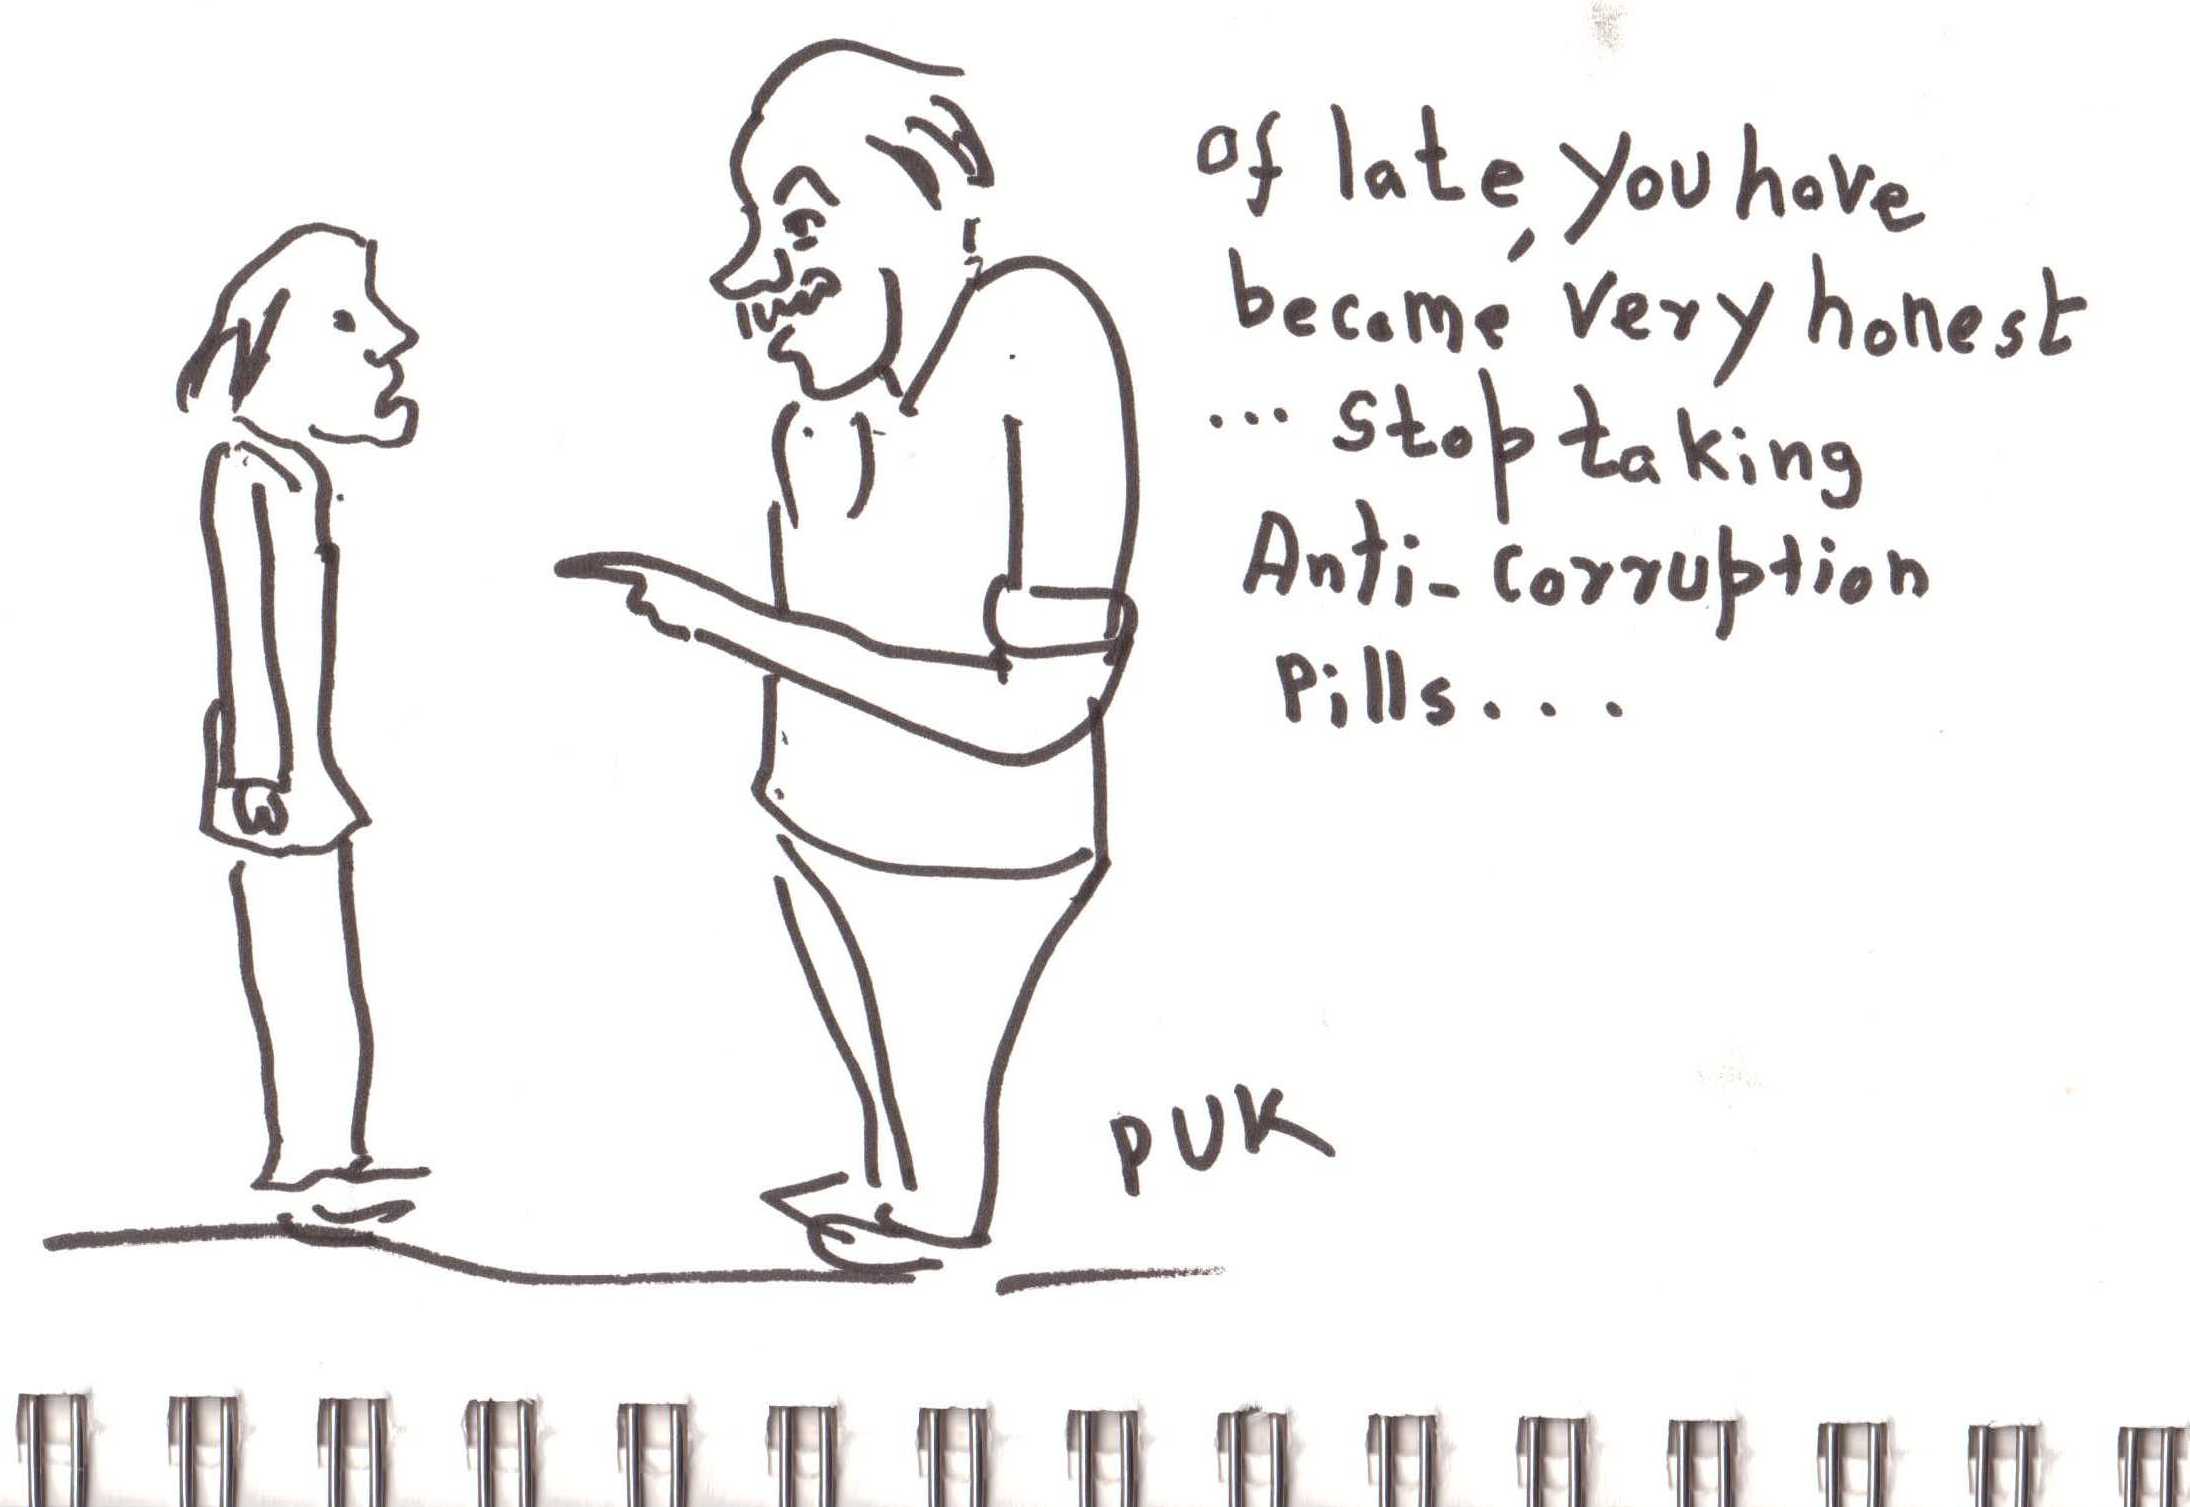 Of late, you have
become very honest
... Stop taking
Anti-Corruption
Pills...
PUK